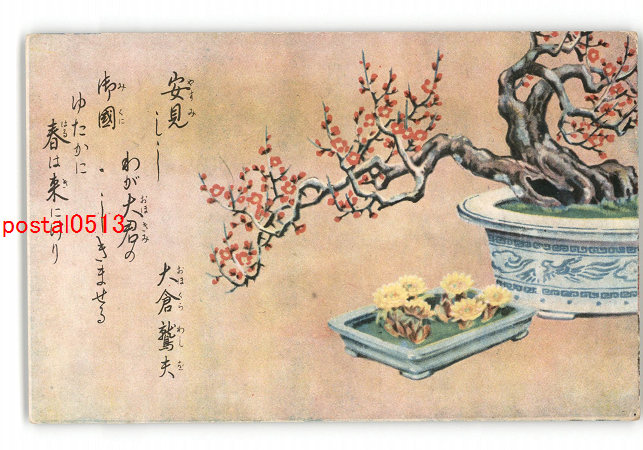 安見しし
わが大君の
御國・しきませる
ゆたかに
春は来にけり
大倉鷲夫
やすみ
おほきみ
みくに
はる
き
おほくらわしを
postal0513